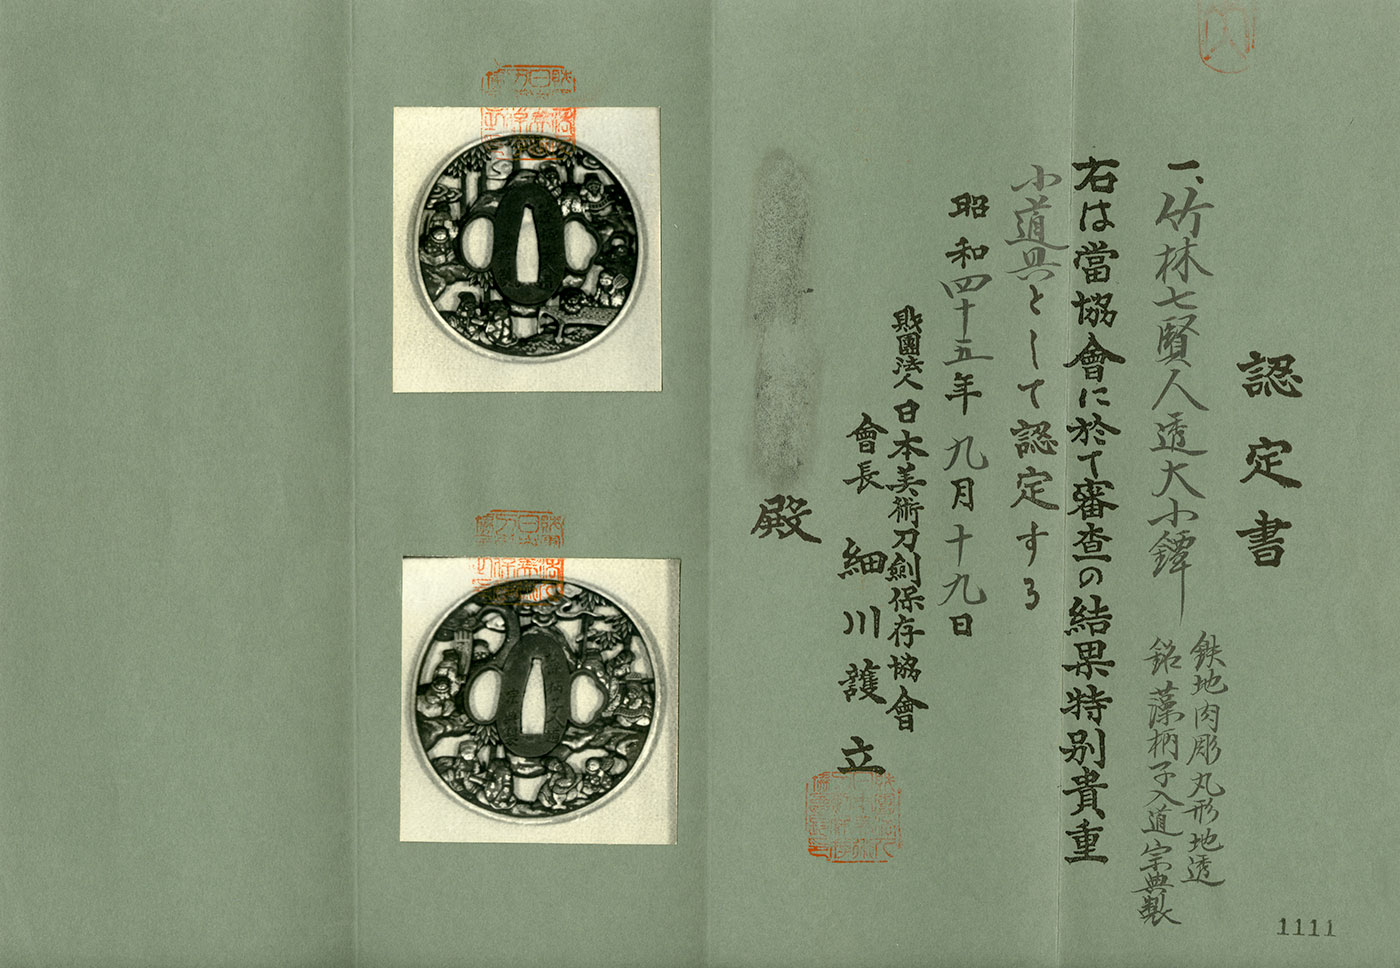 認定書
一、竹林七賢人透大小鐔
鉄地肉彫丸形地透
銘 藻柄子入道宗典製
右は當協會に於て審査の結果特別貴重
小道具として認定する
昭和四十五年九月十九日
財團法人日本美術刀劍保存協會
會長 細川護立
殿
1111